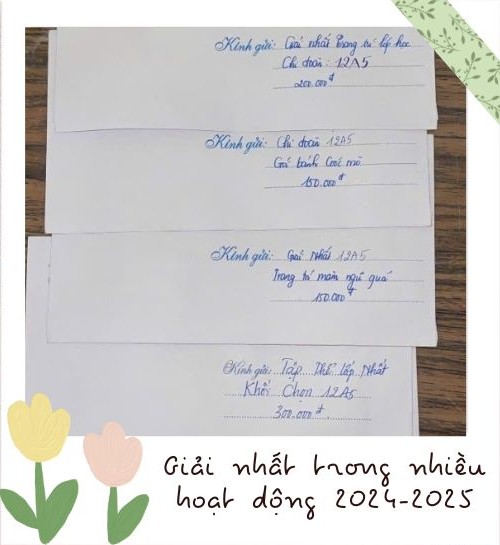 Kính gửi: Giải nhất Trang trí lớp học
Chi đoàn: 12A5
200.000đ
Kính gửi: Chi đoàn 12A5
Gói bánh
150.000đ
Kính gửi: Giải Nhất 12A5
Trang trí mâm ngũ quả
150.000đ
Kính gửi: Tập Thể Lớp Nhất
Khối Chọn 12A5
300.000đ
Giải nhất trong nhiều
hoạt động 2024-2025